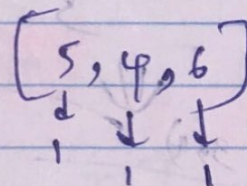 [5, 4, 6]
↓ ↓ ↓
1 1 1